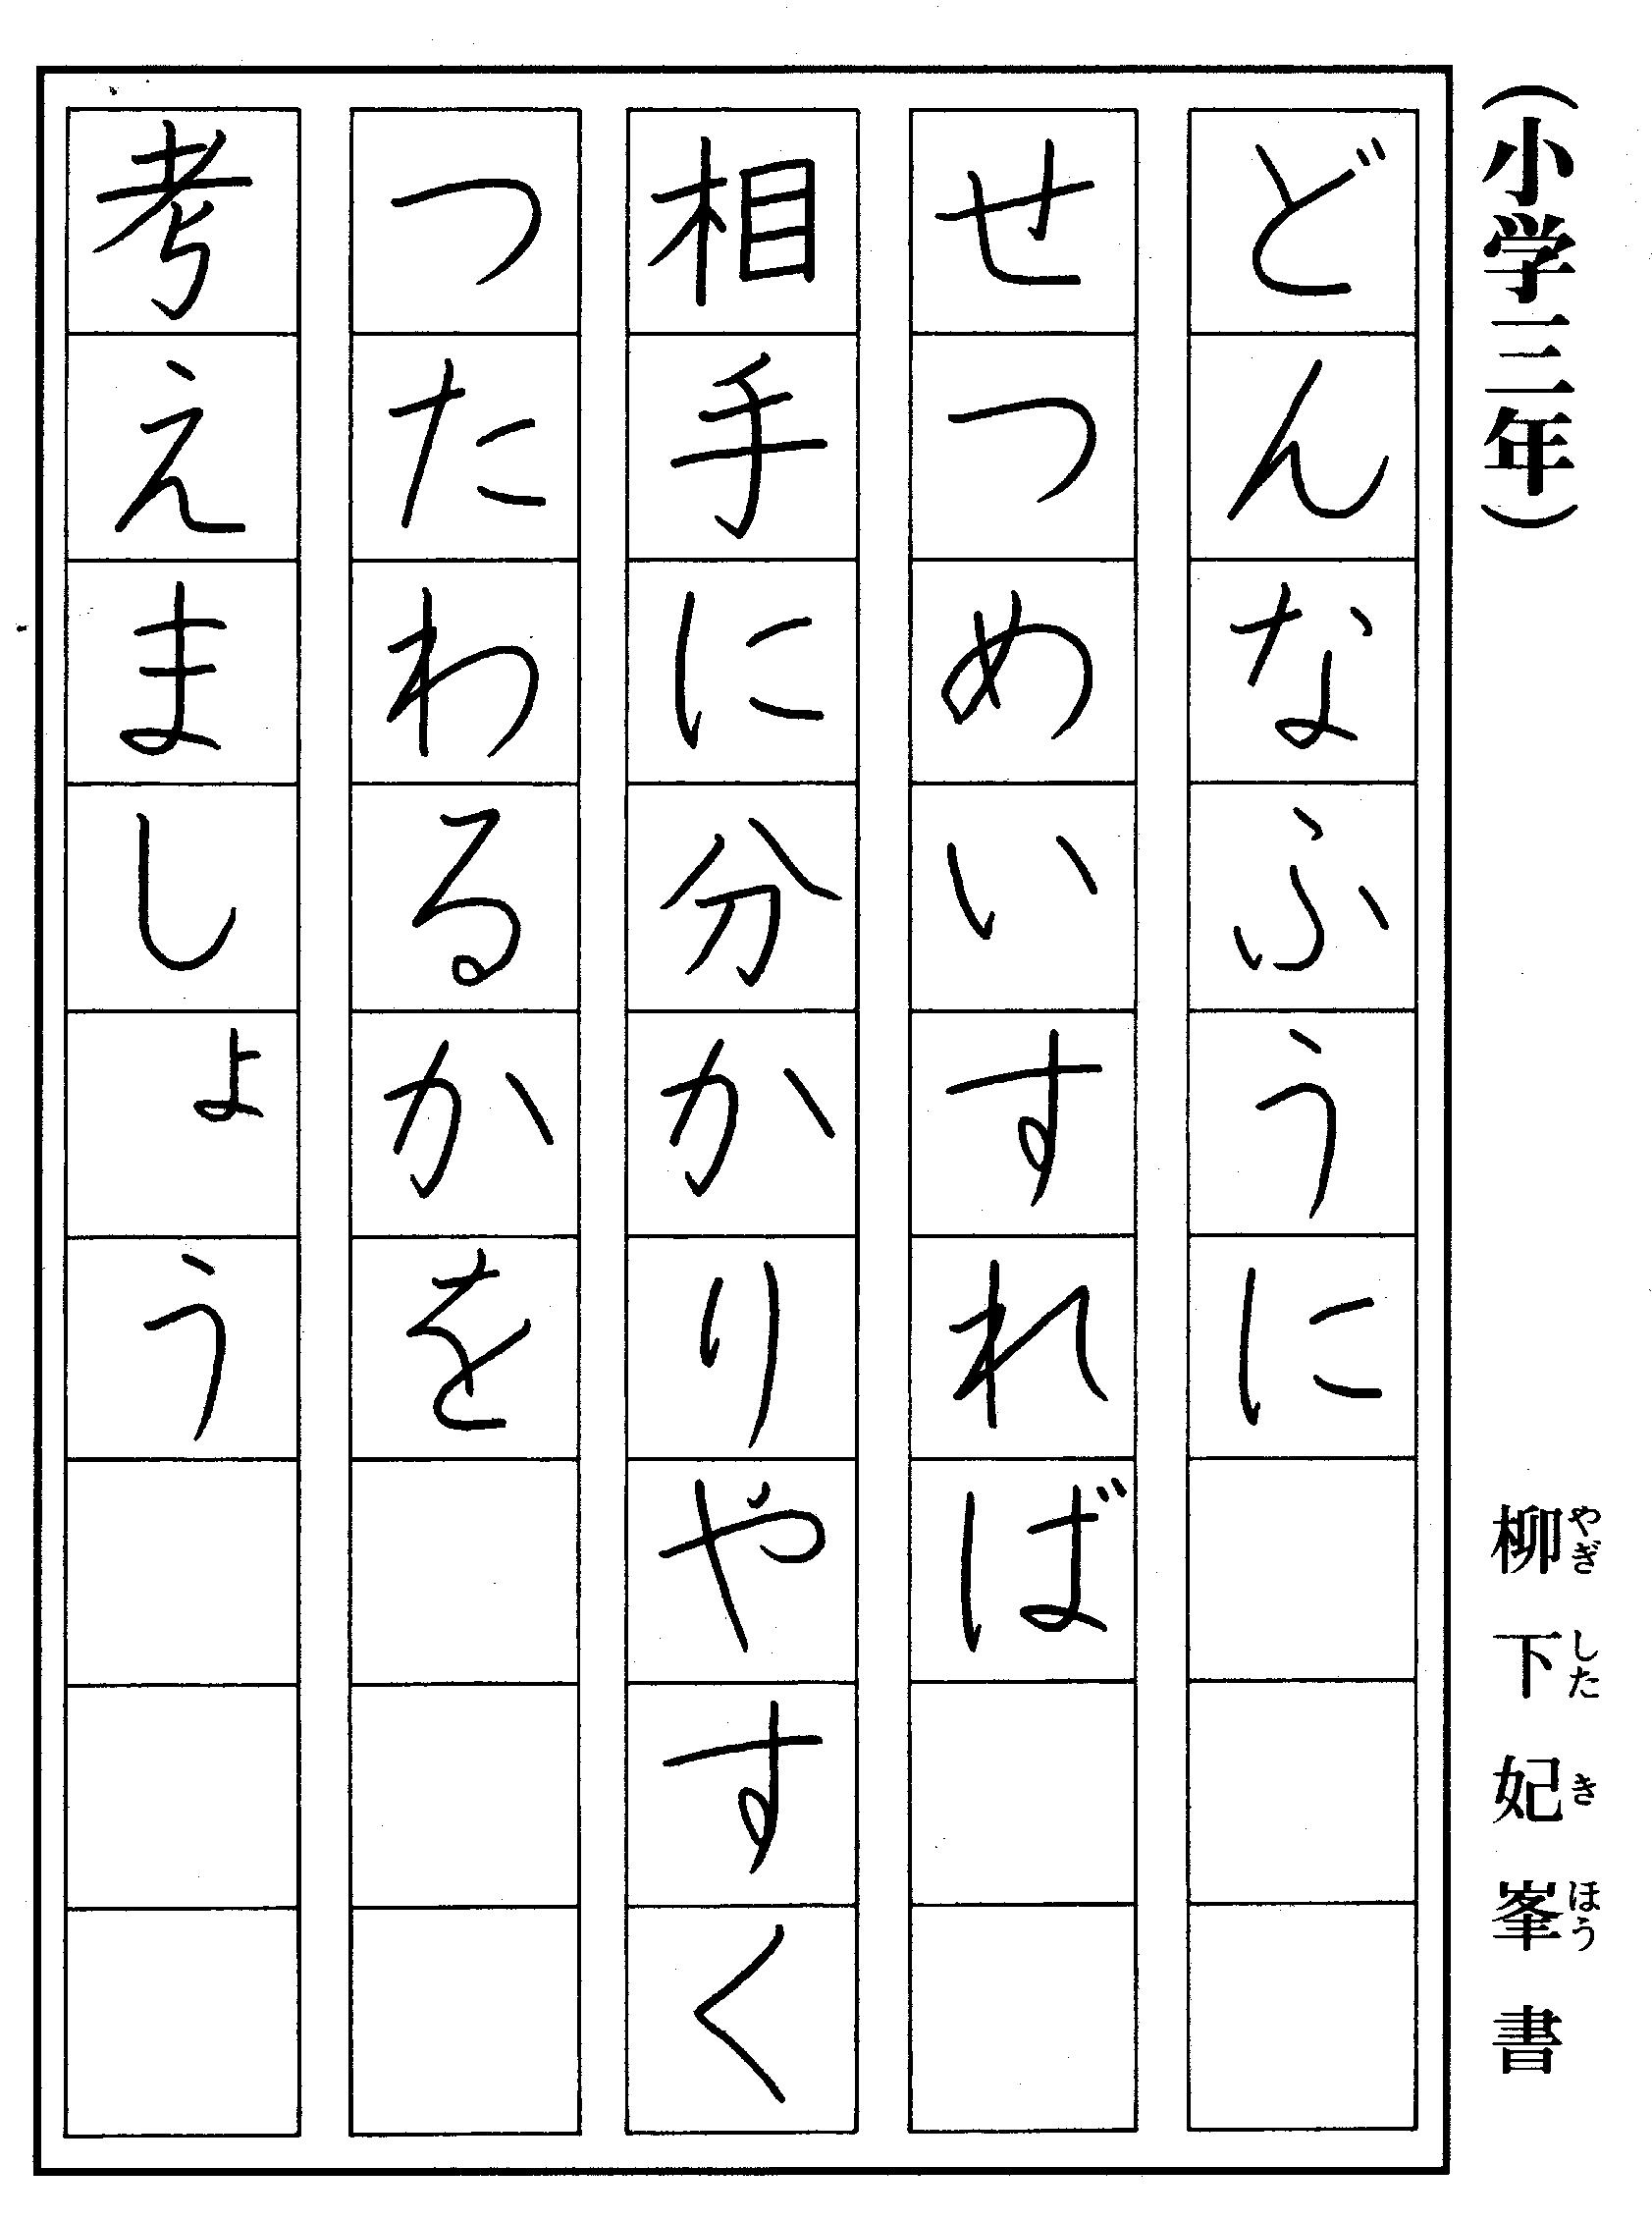 （小学三年）
柳下妃峯書
やぎしたきほう
どんなふうに
せつめいすれば
相手に分かりやすく
つたわるかを
考えましょう